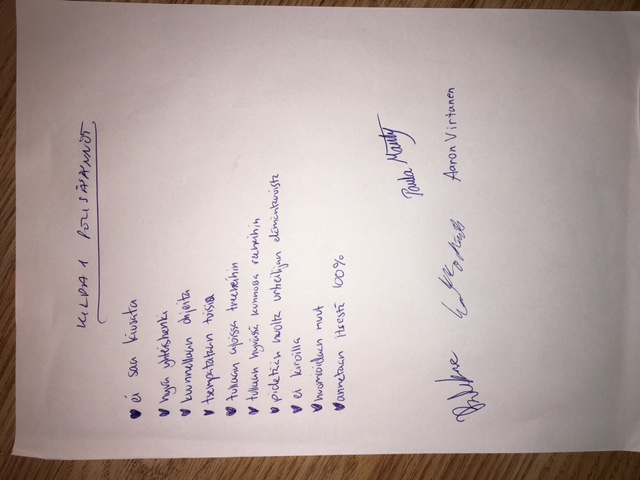 KILPA 1 PELISÄÄNNÖT
ei saa kiusata
hyvä yhteishenki
kunnellaan ohjeita
tsempataan toisia
tullaan ajoissa treeneihin
tullaan hyvässä kunnossa treeneihin
pidetään huolta urheilijan elämäntavoista
ei kiroilla
huomioidaan muut
annetaan itsestä 100%
Paula Mänty
Aaron Virtanen